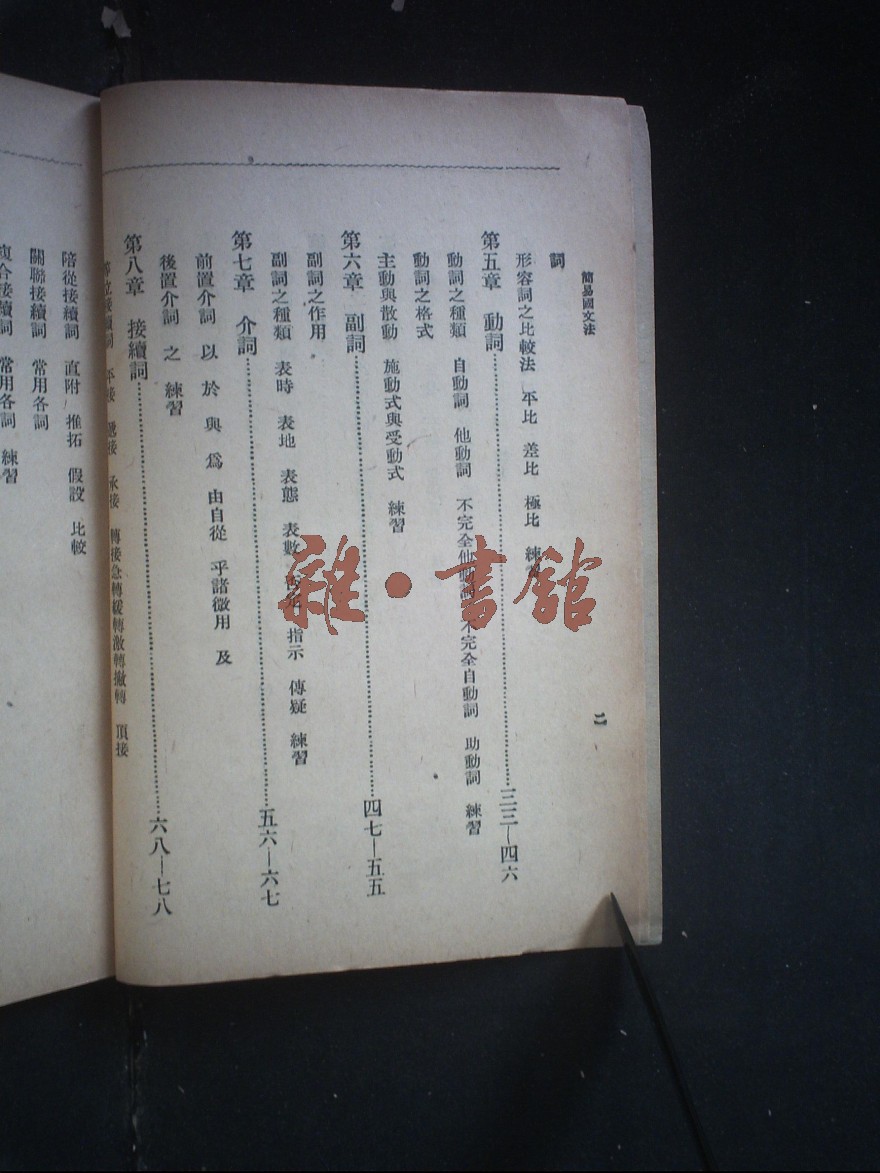 簡易國文法
二
詞
形容詞之比較法 平比 差比 極比 練習
第五章 動詞……三三—四六
動詞之種類 自動詞 他動詞 不完全他動詞 不完全自動詞 助動詞 練習
動詞之格式
主動與散動 施動式與受動式 練習
第六章 副詞……四七—五五
副詞之作用
副詞之種類 表時 表地 表態 表數 指示 傳疑 練習
第七章 介詞……五六—六七
前置介詞 以 於 與 爲 由自從 乎諸微用 及
後置介詞 之 練習
第八章 接續詞……六八—七八
等立接續詞 平接 遞接 承接 轉接急轉緩轉激轉撇轉 頂接
陪從接續詞 直附 推拓 假設 比較
關聯接續詞 常用各詞
複合接續詞 常用各詞 練習
雜·書館